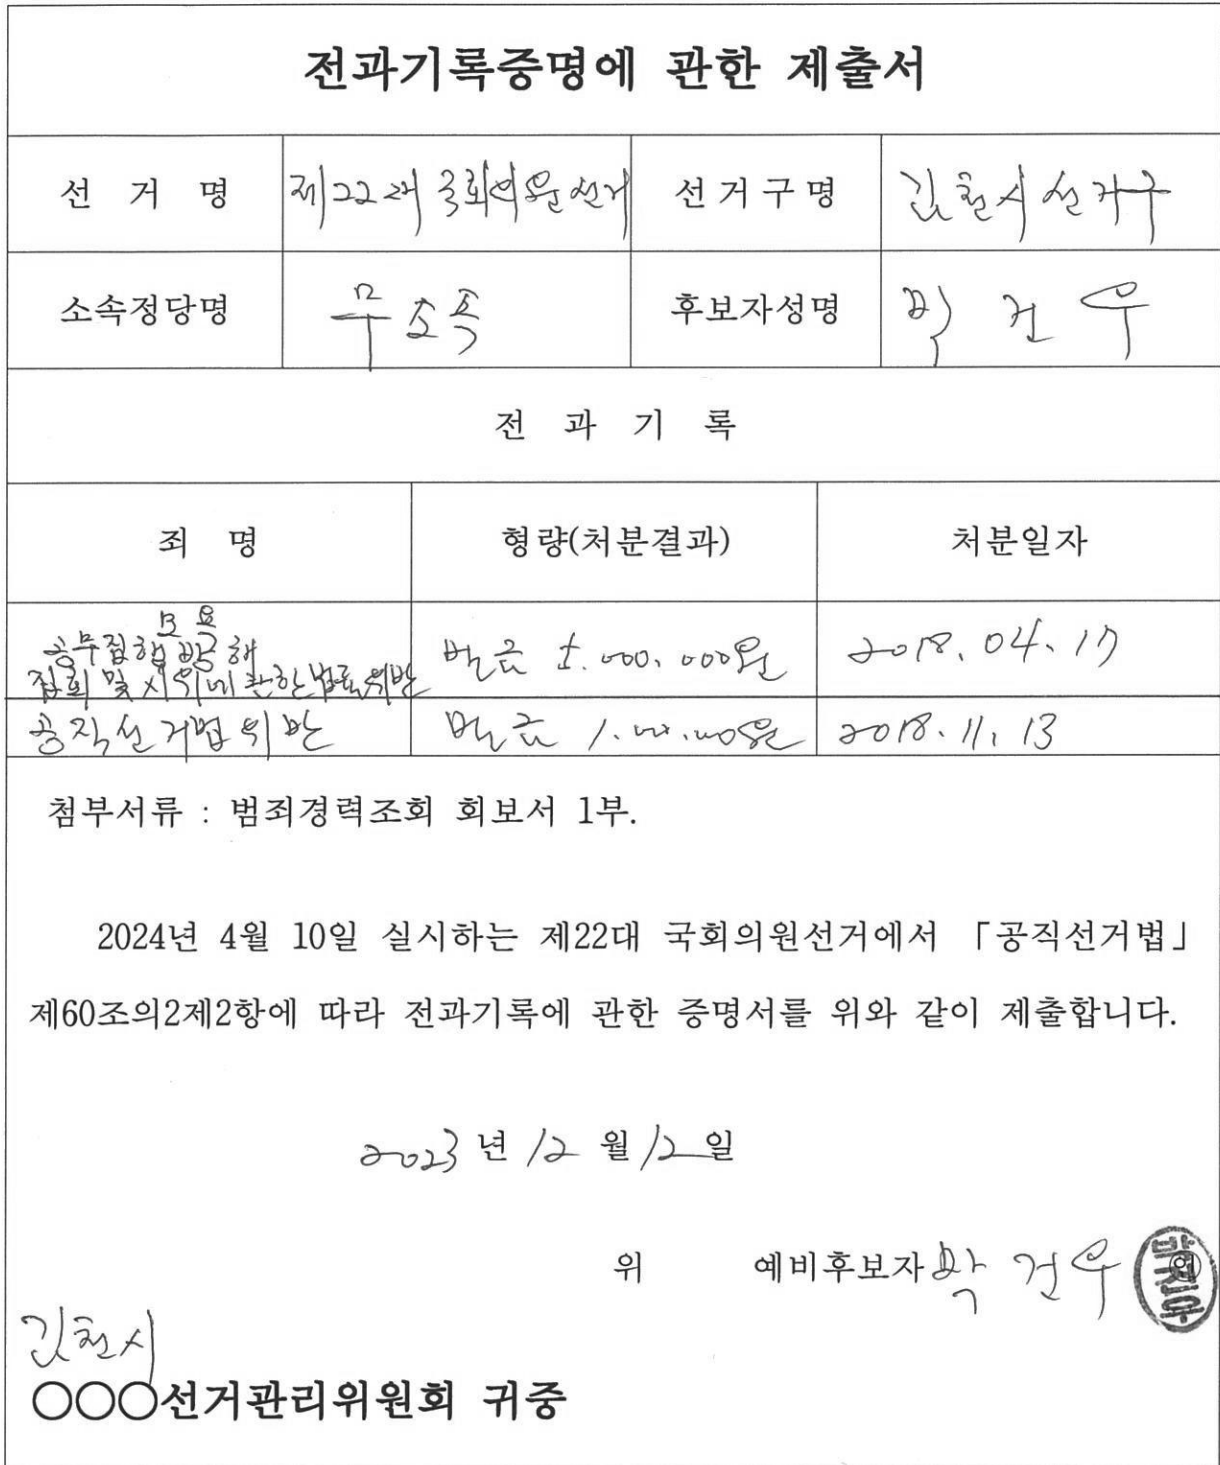 전과기록증명에 관한 제출서
선 거 명 제22대 국회의원선거 선거구명 김천시선거구
소속정당명 무소속 후보자성명 박건우
전 과 기 록
죄 명 형량(처분결과) 처분일자
모욕
공무집행방해
집회 및 시위에 관한법률위반 벌금 .000.000원 2018.04.17
공직선거법위반 벌금 1.000.000원 2018.11.13
첨부서류 : 범죄경력조회 회보서 1부.
2024년 4월 10일 실시하는 제22대 국회의원선거에서 「공직선거법」
제60조의2제2항에 따라 전과기록에 관한 증명서를 위와 같이 제출합니다.
2023년 12월 12일
위 예비후보자 박건우 박건우
김천시
○○○선거관리위원회 귀중